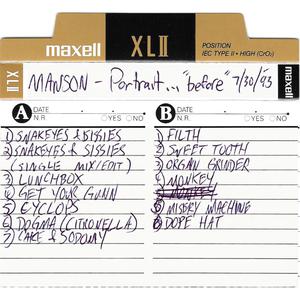 maxell XLII POSITION
IEC TYPE II • HIGH (CrO₂)
XLII
MANSON - Portrait... "before" 7/30/93
A DATE
N.R. YES NO
1) SNAKEYES & SISSIES
2) SNAKEYES & SISSIES
(SINGLE MIX/EDIT)
3) LUNCHBOX
4) GET YOUR GUNN
5) CYCLOPS
6) DOGMA (CITRONELLA)
7) CAKE & SODOMY
B DATE
N.R. YES NO
1) FILTH
2) SWEET TOOTH
3) ORGAN GRINDER
4) MONKEY
5) MISERY MACHINE
6) DOPE HAT